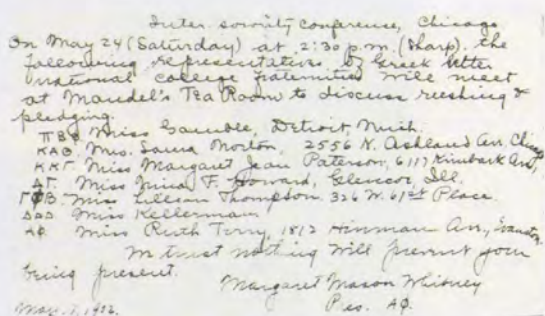 Inter-sorority Conference, Chicago
On May 24 (Saturday) at 2:30 p.m. (sharp) the
following representatives of Greek letter
national college fraternities will meet
at Mandel's Tea Room to discuss rushing &
pledging.
ΠΒΦ Miss Gamble, Detroit, Mich.
ΚΑΘ Miss. Laura Norton, 2556 N. Ashland Av., Chicago
ΚΚΓ Miss Margaret Jean Paterson, 6117 Kimbark Av.,
ΔΓ. Miss Mina F. Howard, Glencoe, Ill.
ΓΦΒ. Miss Lillian Thompson 326 W. 61st Place.
ΔΔΔ Miss Kellerman
ΑΦ Miss Ruth Terry, 1812 Hinman Av., Evanston
We trust nothing will prevent your
being present.
Margaret Mason Whitney
Pres. ΑΦ.
May. 7, 1902.